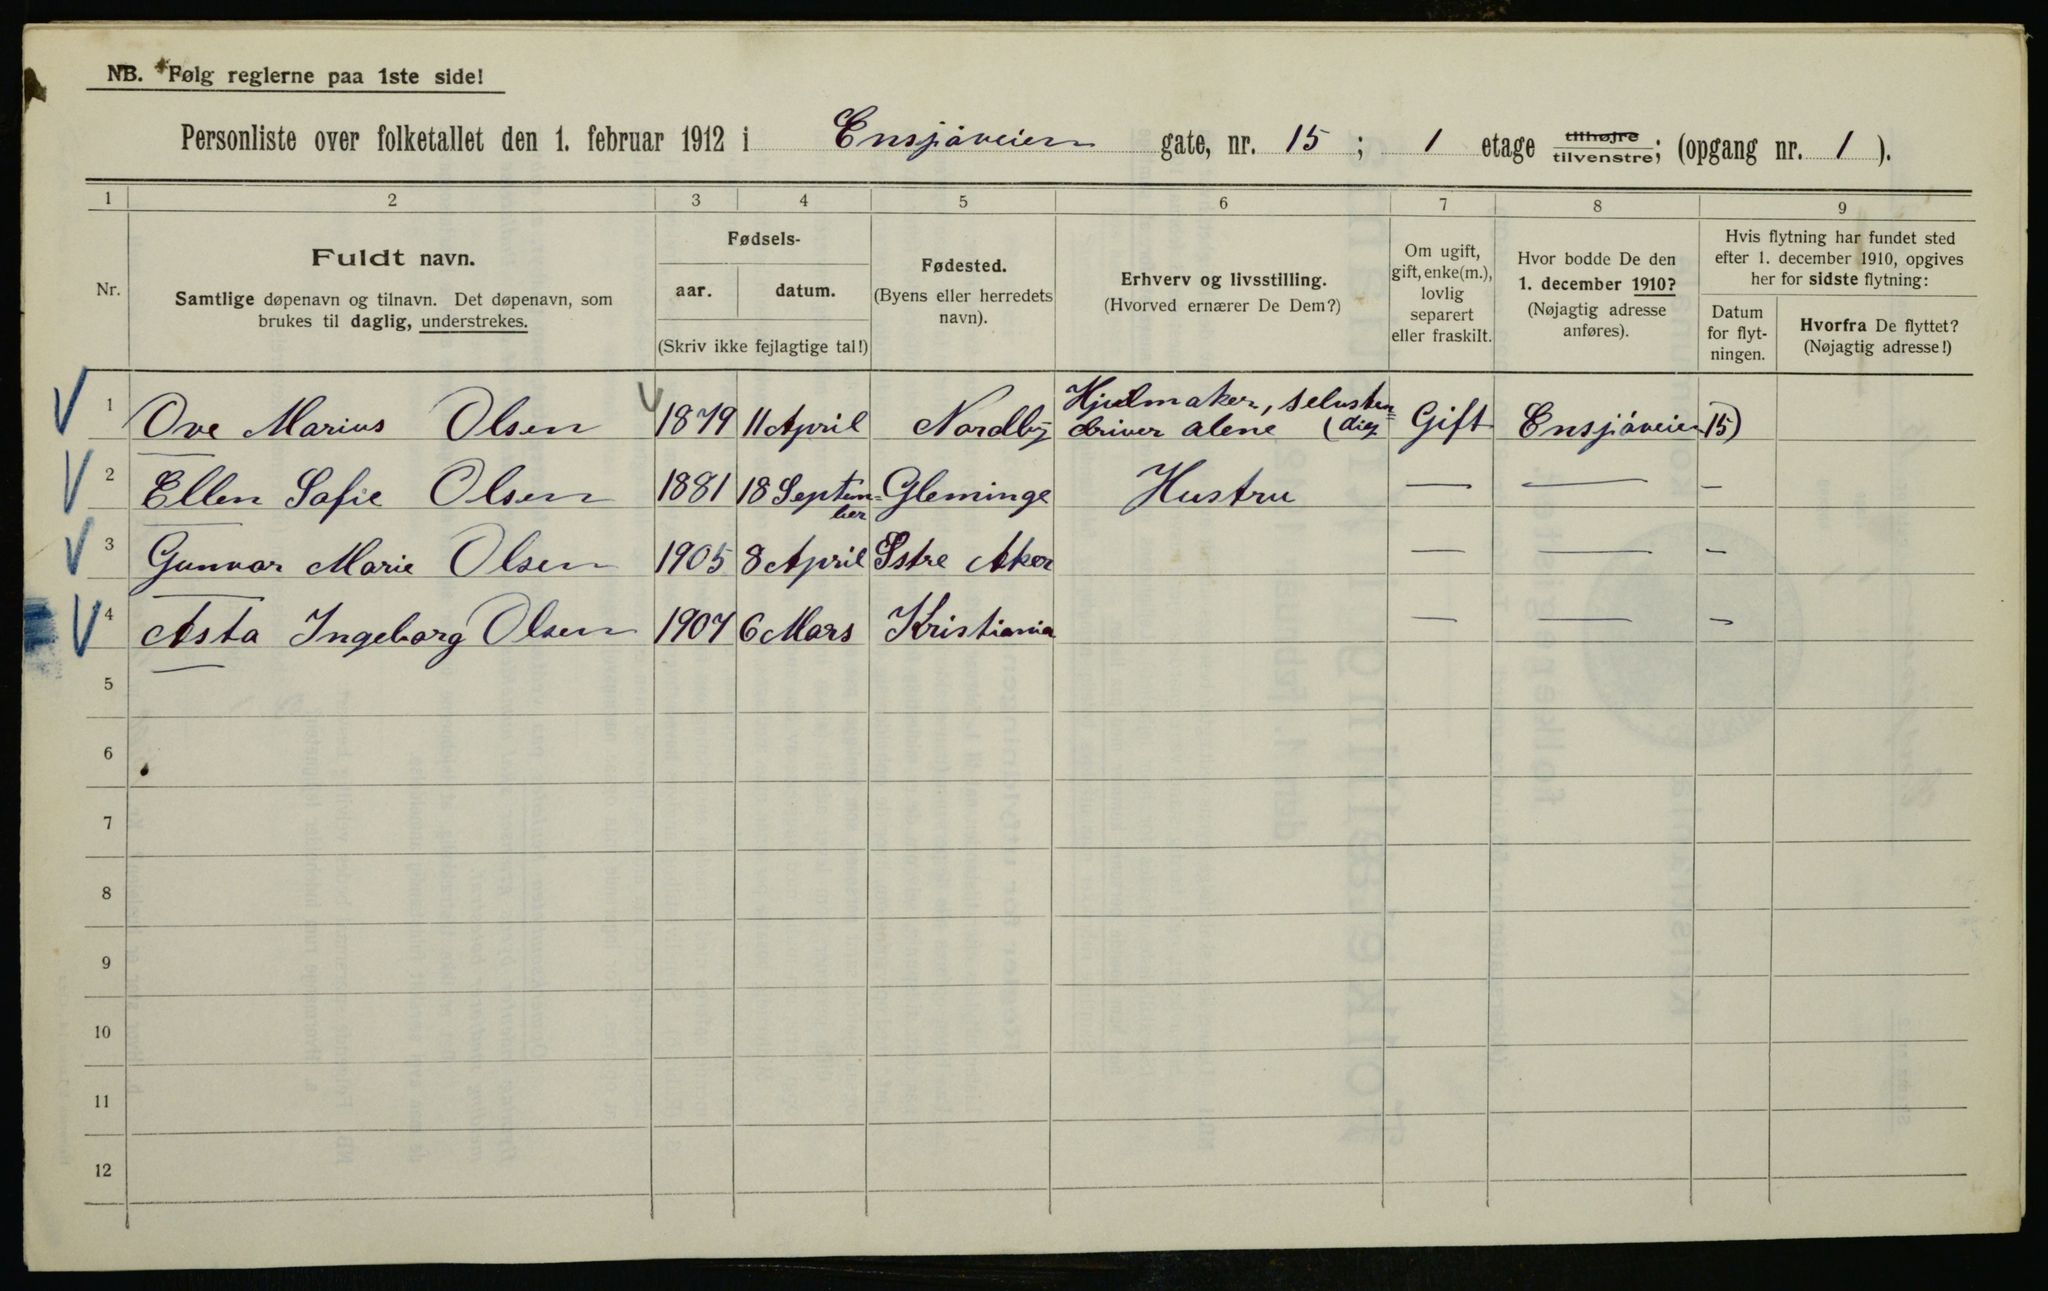 NB. Følg reglerne paa 1ste side!
Personliste over folketallet den 1. februar 1912 i Ensjøveien gate, nr. 15 ; 1 etage tilhøjre tilvenstre; (opgang nr. 1 ).
1 2 3 4 5 6 7 8 9
Nr.
Fuldt navn.
Samtlige døpenavn og tilnavn. Det døpenavn, som
brukes til daglig, understrekes.
Fødsels-
aar. datum.
(Skriv ikke fejlagtige tal!)
Fødested.
(Byens eller herredets
navn).
Erhverv og livsstilling.
(Hvorved ernærer De Dem?)
Om ugift,
gift, enke(m.),
lovlig
separert
eller fraskilt.
Hvor bodde De den
1. december 1910?
(Nøjagtig adresse
anføres).
Hvis flytning har fundet sted
efter 1. december 1910, opgives
her for sidste flytning:
Datum
for flyt-
ningen.
Hvorfra De flyttet?
(Nøjagtig adresse!)
1 Ove Marius Olsen 1879 11 April Nordby Hjulmaker, selvsten=
driver alene (dig Gift Ensjøveien 15)
2 Ellen Sofie Olsen 1881 18 Septem=
ber Gleminge Hustru — — –
3 Gunvor Marie Olsen 1905 8 April Østre Aker — — –
4 Asta Ingeborg Olsen 1907 6 Mars Kristiania — — –
5
6
7
8
9
10
11
12